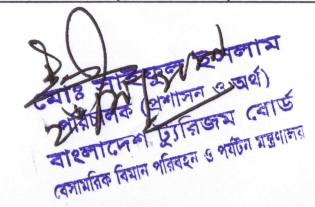 মোঃ সাইফুল ইসলাম
পরিচালক (প্রশাসন ও অর্থ)
বাংলাদেশ ট্যুরিজম বোর্ড
বেসামরিক বিমান পরিবহন ও পর্যটন মন্ত্রণালয়